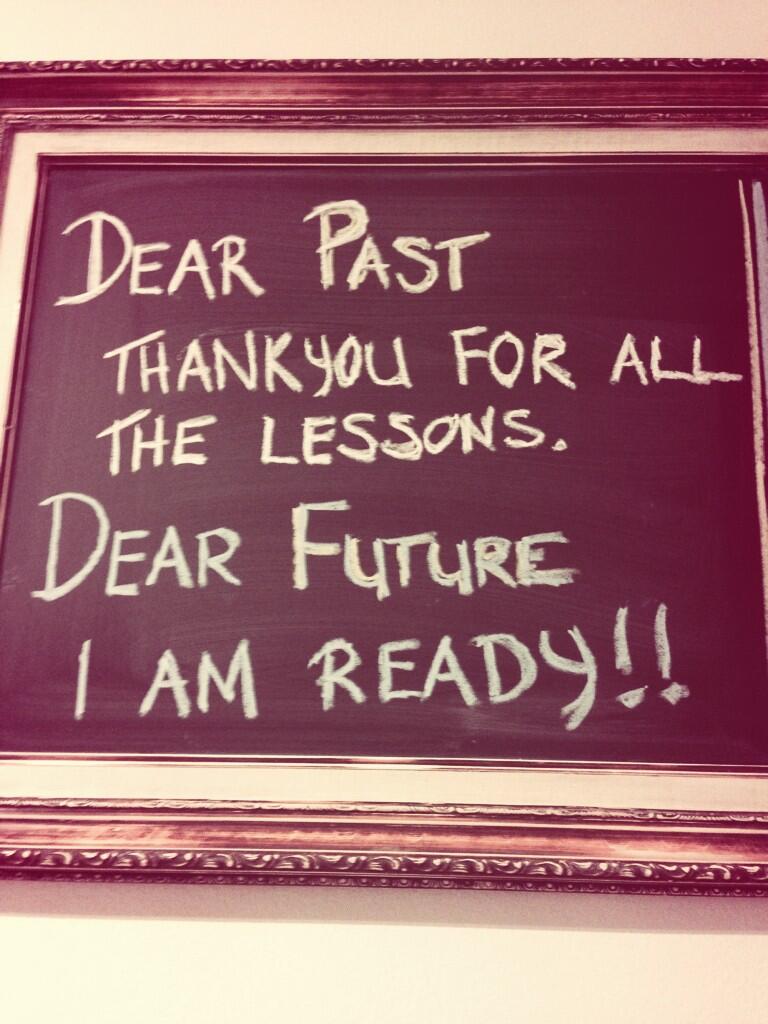 DEAR PAST
THANKYOU FOR ALL
THE LESSONS.
DEAR FUTURE
I AM READY!!